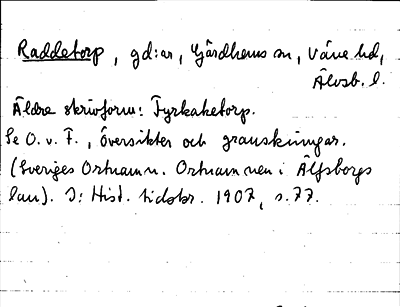 Raddetorp, gd:ar, Gärdhems sn, Väne hd,
Älvsb. l.
Äldre skrivform: Fyrkaketorp.
Se O. v. F., Översikter och granskningar.
(Sveriges Ortnamn. Ortnamnen i Älfsborgs
län). I: Hist. tidskr. 1907, s. 77.